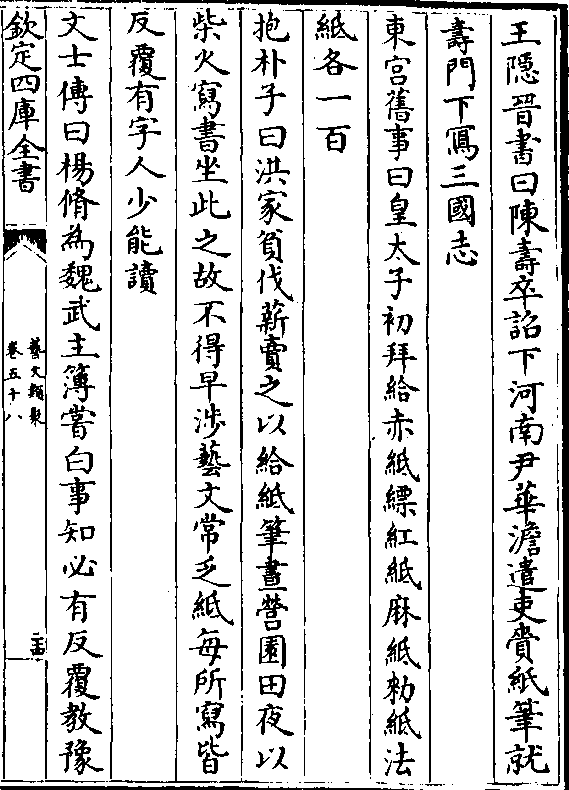 王隱晉書曰陳壽卒詔下河南尹華澹遣吏賫紙筆就
壽門下寫三國志
東宫舊事曰皇太子初拜給赤紙縹紅紙麻紙勑紙法
紙各一百
抱朴子曰洪家貧伐薪賣之以給紙筆晝營園田夜以
柴火寫書坐此之故不得早涉藝文常乏紙每所寫皆
反覆有字人少能讀
文士傳曰楊脩為魏武主簿嘗白事知必有反覆教豫
欽定四庫全書
藝文類聚
卷五十八
二十五